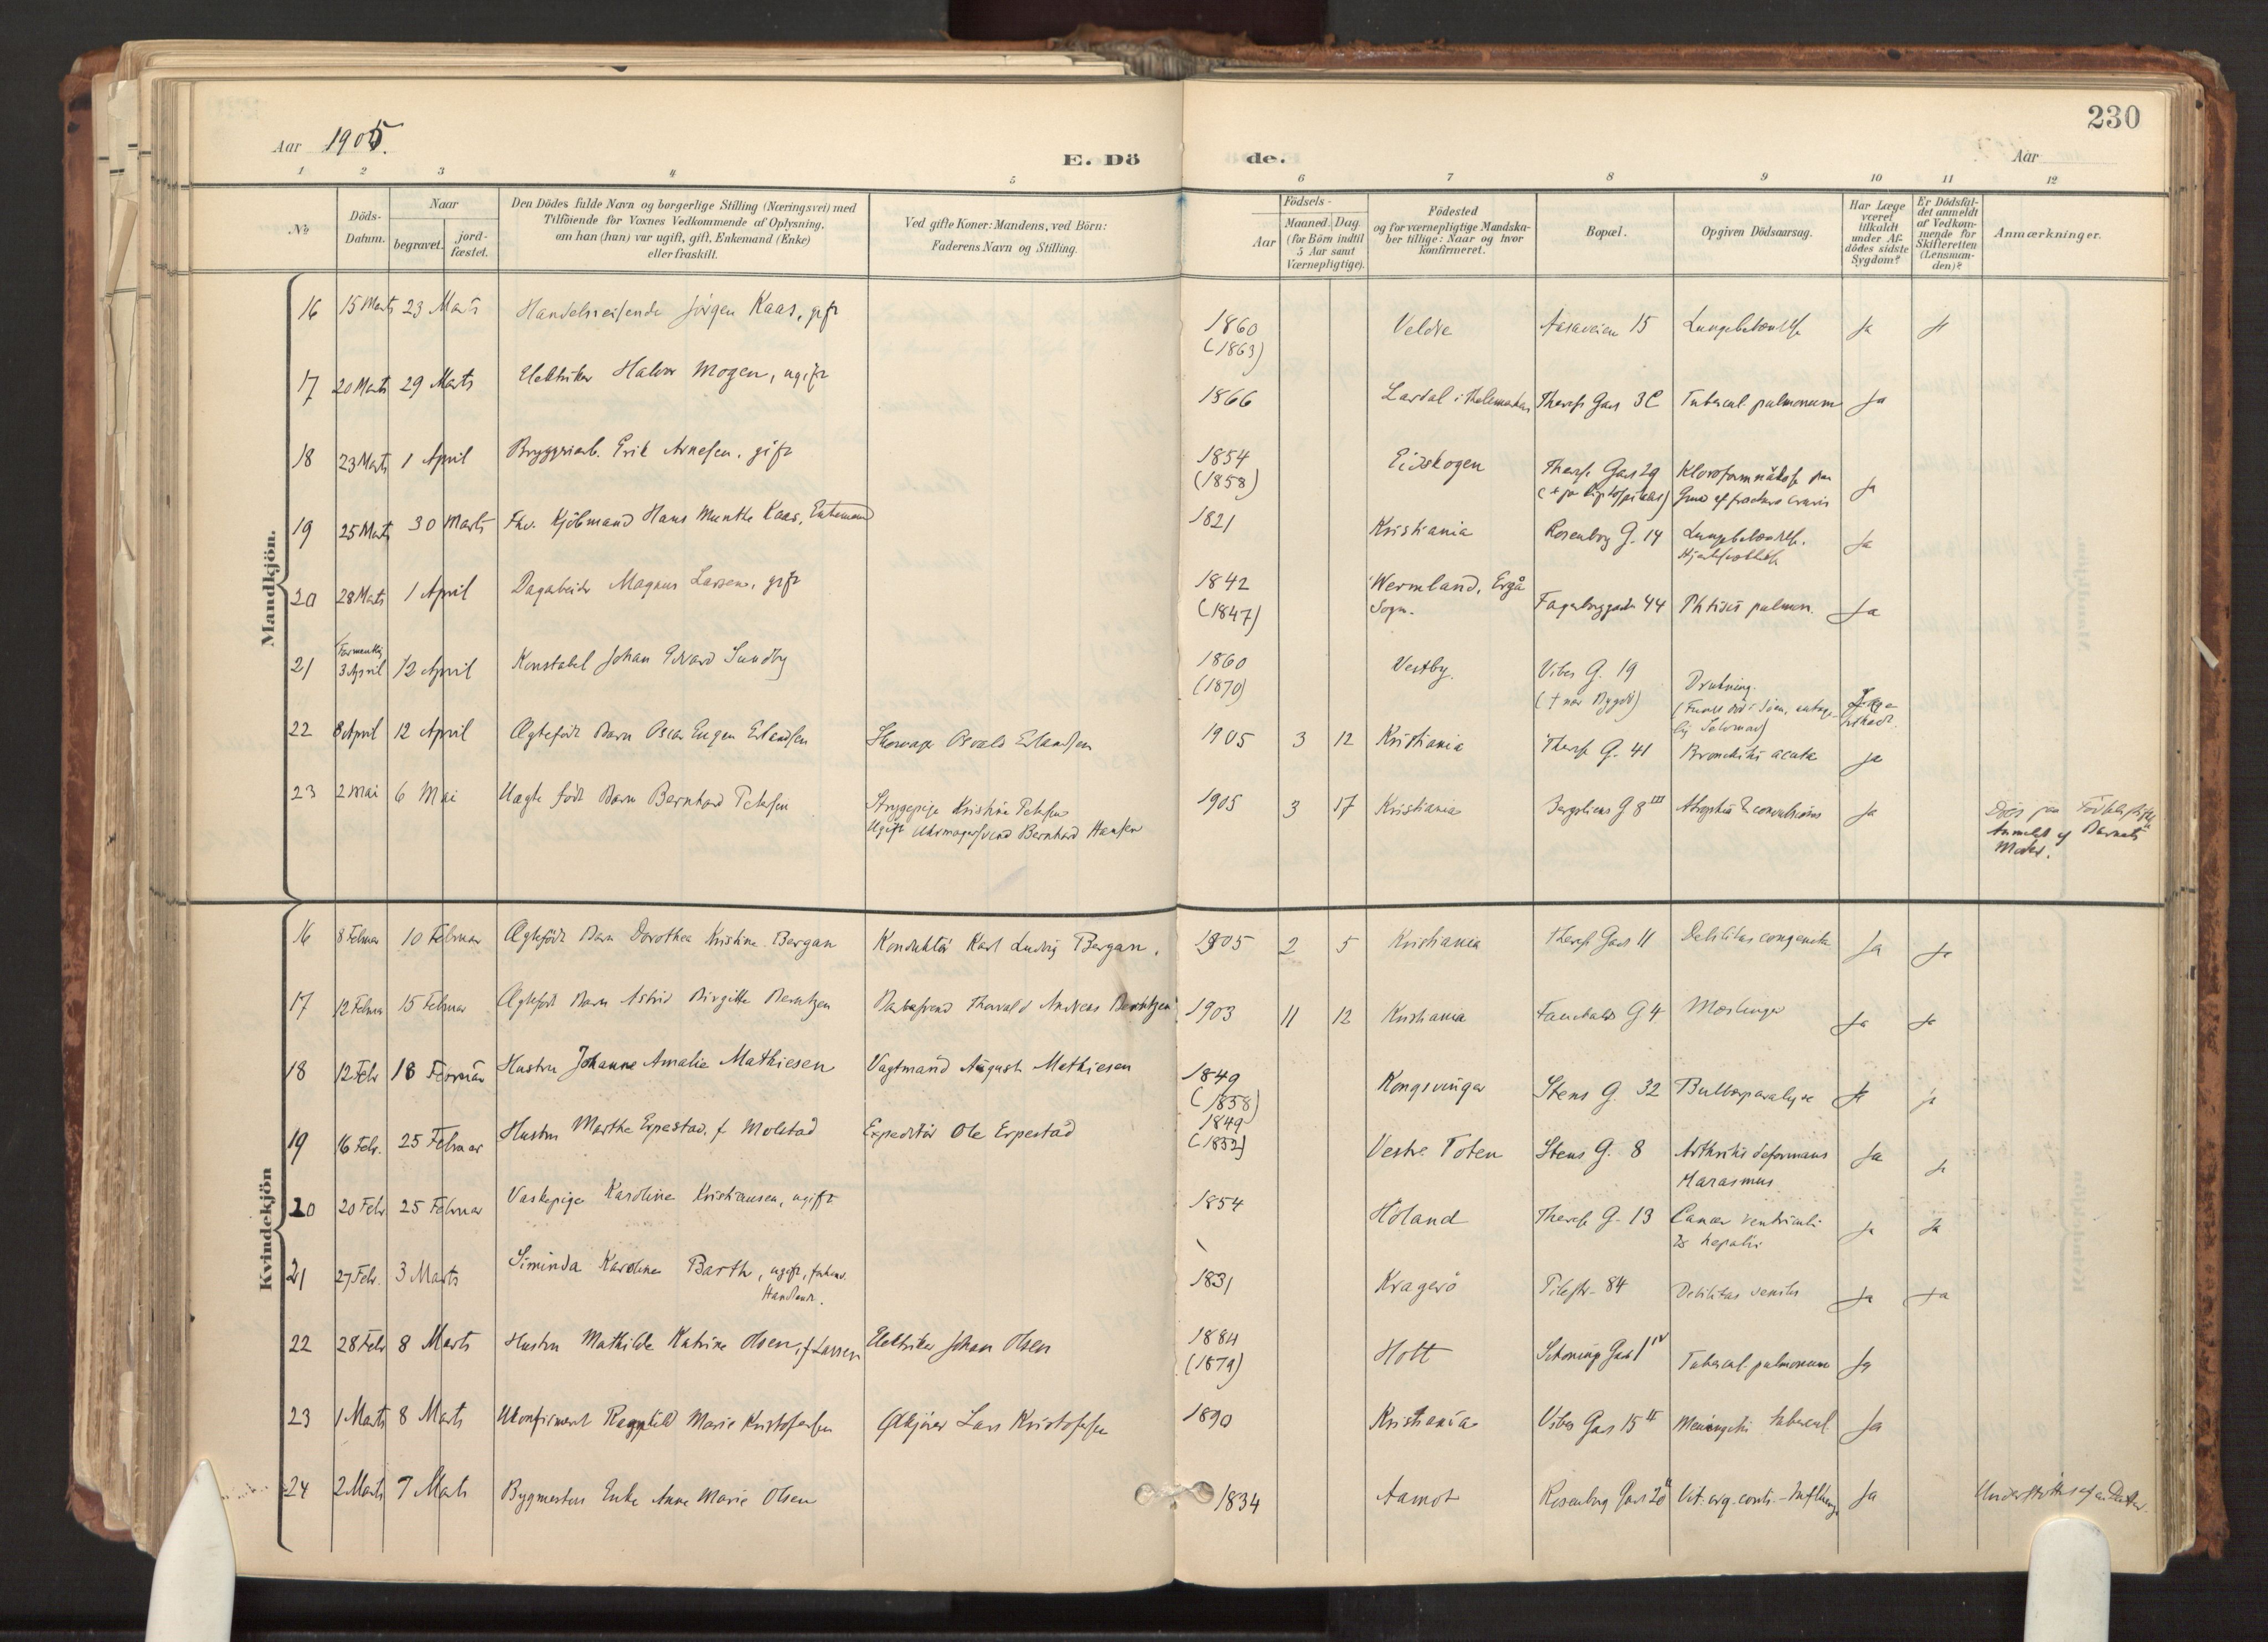 230
Aar 1905.
E. Dö de.
Aar
1 2 3 4 5 6 7 8 9 10 11 12
No
Döds-Datum.
Naar
begravet.
jord-fæstet.
Den Dödes fulde Navn og borgerlige Stilling (Næringsvei) med
Tilföiende for Voxnes Vedkommende af Oplysning,
om han (hun) var ugift, gift, Enkemand (Enke)
eller fraskilt.
Ved gifte Koner: Mandens, ved Börn:
Faderens Navn og Stilling.
Födsels-
Aar
Maaned. Dag.
(for Börn indtil
5 Aar samt
Værnepligtige).
Födested
og for værnepligtige Mandska-
ber tillige: Naar og hvor
konfirmeret.
Bopæl.
Opgiven Dödsaarsag.
Har Læge
været
tilkaldt
under Af-
dödes sidste
Sygdom?
Er Dödsfal-
det anmeldt
af Vedkom-
mende for
Skifteretten
(Lensman-
den)?
Anmærkninger.
Mandkjön.
16 15 Marts 23 Marts Handelsreisende Jörgen Kaas, gift 1860 Veldre Aasaveien 15 Lungebetændelse Ja Ja
(1863)
17 20 Marts 29 Marts Elektriker Halvor Mogen, ugift 1866 Lardal i Thelemarken Theres Gad 3C Tubercul. pulmonum Ja
18 23 Marts 1 April Bryggeriarb. Erik Arnesen, gift 1854 Eidskogen Theres Gad 29 Kloroformnarkose paa
(1858) Grund af fractura cruris Ja
19 25 Marts 30 Marts Fhv. Kjöbmand Hans Munthe Kaas, Enkemand 1821 Kristiania Rosenborg G. 14 Lungebetændelse. Ja
20 28 Marts 1 April Dagarbeider Magnus Larsen, gift 1842 Wermland, Ergå
(1847) Sogn. Fagerborggaden 44 Phtisis pulmon. Ja
21 Formentlig
3 April 12 April Konstabel Johan Edvard Sundby 1860 Vestby. Vibes G. 19 Drukning.
(1870) († nær Bygdö)
22 8 April 12 April Ægtefödt Barn Oscar Eugen Erlandsen Skomager Osvald Erlandsen 1905 3 12 Kristiania Theres G. 41 Bronchitis acuta Ja
23 2 Mai 6 Mai Uægte födt Barn Bernhard Petersen Strygepige Kristine Petersen 1905 3 17 Kristiania G 8 III Atrophia & convulsiones Ja Döde paa Födselsstift.
Ugift Uhrmagersvend Bernhard Hansen Anmeldt af Barnets
Moder.
Kvindekjön
16 8 Februar 10 Februar Ægtefödt Barn Dorothea Kristine Bergan Konduktör Karl Ludvig Bergan. 1905 2 5 Kristiania Theres Gad 11 Debilitas congenita Ja Ja
17 12 Februar 15 Februar Ægtefödt Barn Astrid Birgitte Berntzen Thorvald Andreas Berntzen 1903 11 12 Kristiania Fauchalds G 4 Mæslinger Ja Ja
18 12 Febr 18 Februar Hustru Johanne Amalie Mathiesen Vagtmand August Mathiesen 1849 Kongsvinger Stens G. 32 Bulbærparalyse Ja Ja
(1858)
19 16 Febr. 25 Februar Hustru Marthe Erpestad. f. Molstad Expeditör Ole Erpestad 1849 Vestre Toten Stens G. 8 Arthritis deformans Ja Ja
(1852) Marasmus
20 20 Febr 25 Februar Vaskepige Karoline Kristiansen, ugift 1854 Höland Theres G. 13 Cancer ventriculi Ja Ja
& hepatis
21 27 Febr. 3 Marts Siminda Karoline Barth, ugift, forhenv. 1831 Kragerö Pilestr. 84 Debilitas senilis Ja Ja
Handlende.
22 28 Febr 8 Marts Hustru Mathilde Katrine Olsen, f. Larsen Elektriker Johan Olsen 1884 Holt Schöning Gad 1 IV Tubercul. pulmonum Ja
(1879)
23 1 Marts 8 Marts Ukonfirmert Ragnhild Marie Kristofersen Lars Kristofersen 1890 Kristiania Vibes Gad 15 II Meningitis tubercul. Ja
24 2 Marts 7 Marts Bygmesters Enke Anne Marie Olsen 1834 Aamot Rosenborg Gad 20 II Vit. org. cordis - Influenza Ja Understöttes af en Datter.